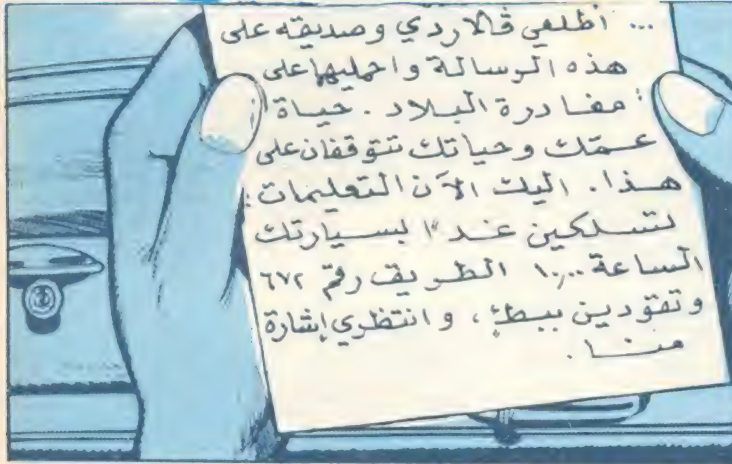 ... أطلعي ڤالاردي وصديقه على
هذه الرسالة واحمليها على
مغادرة البلاد . حياة
عمّك وحياتك تتوقفان على
هذا . اليك الآن التعليمات :
تسلكين غداً بسيارتك
الساعة ١٠,٠٠ الطريق رقم ٦٧٢
وتقودين ببطئٍ ، وانتظري إشارة
منا .